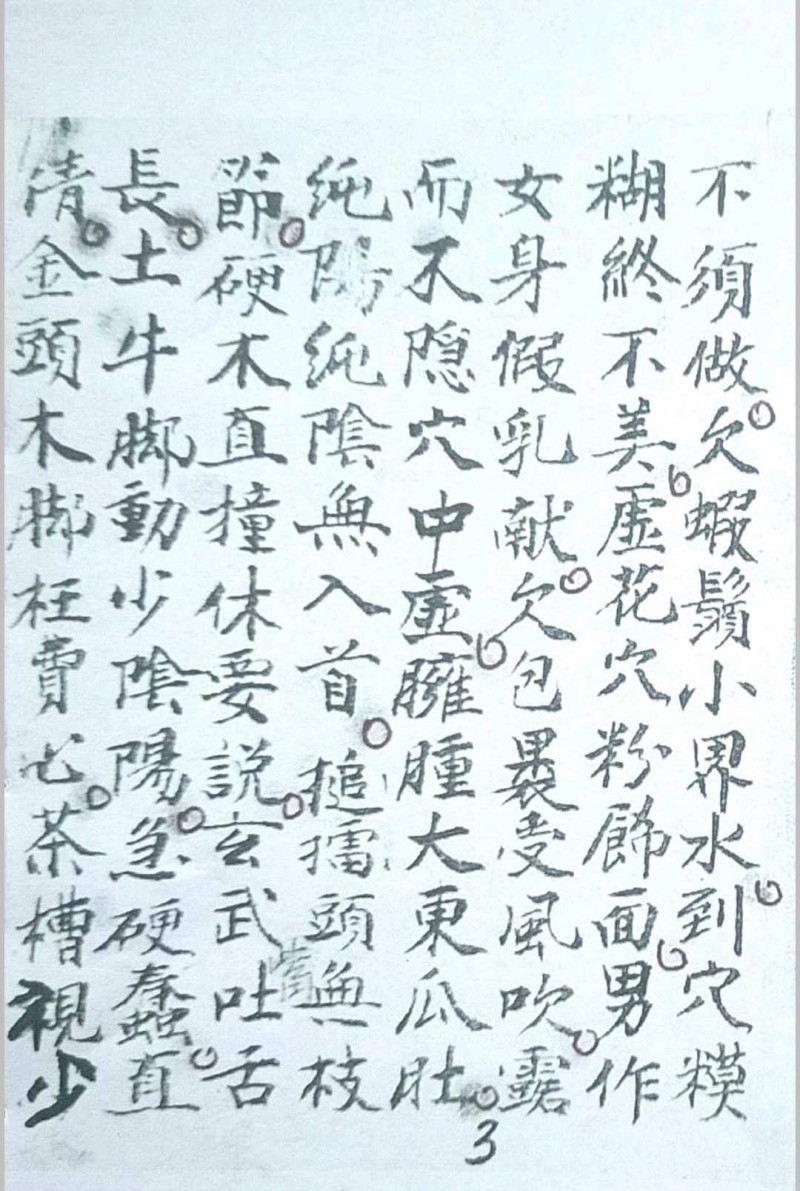 不須做。欠蝦鬚小界水。到穴糢
糊終不美。虛花穴粉餙面。男作
女身假乳献。欠包裹受風吹。露
而不隐穴中虛。臃腫大東瓜肚。
純陽純陰無入首。搥擂頭無枝
節。硬木直撞休要説。玄武吐舌
長。土牛脚動少陰陽。急硬蠢直。
情。金頭木脚枉費心。茶槽視少
3